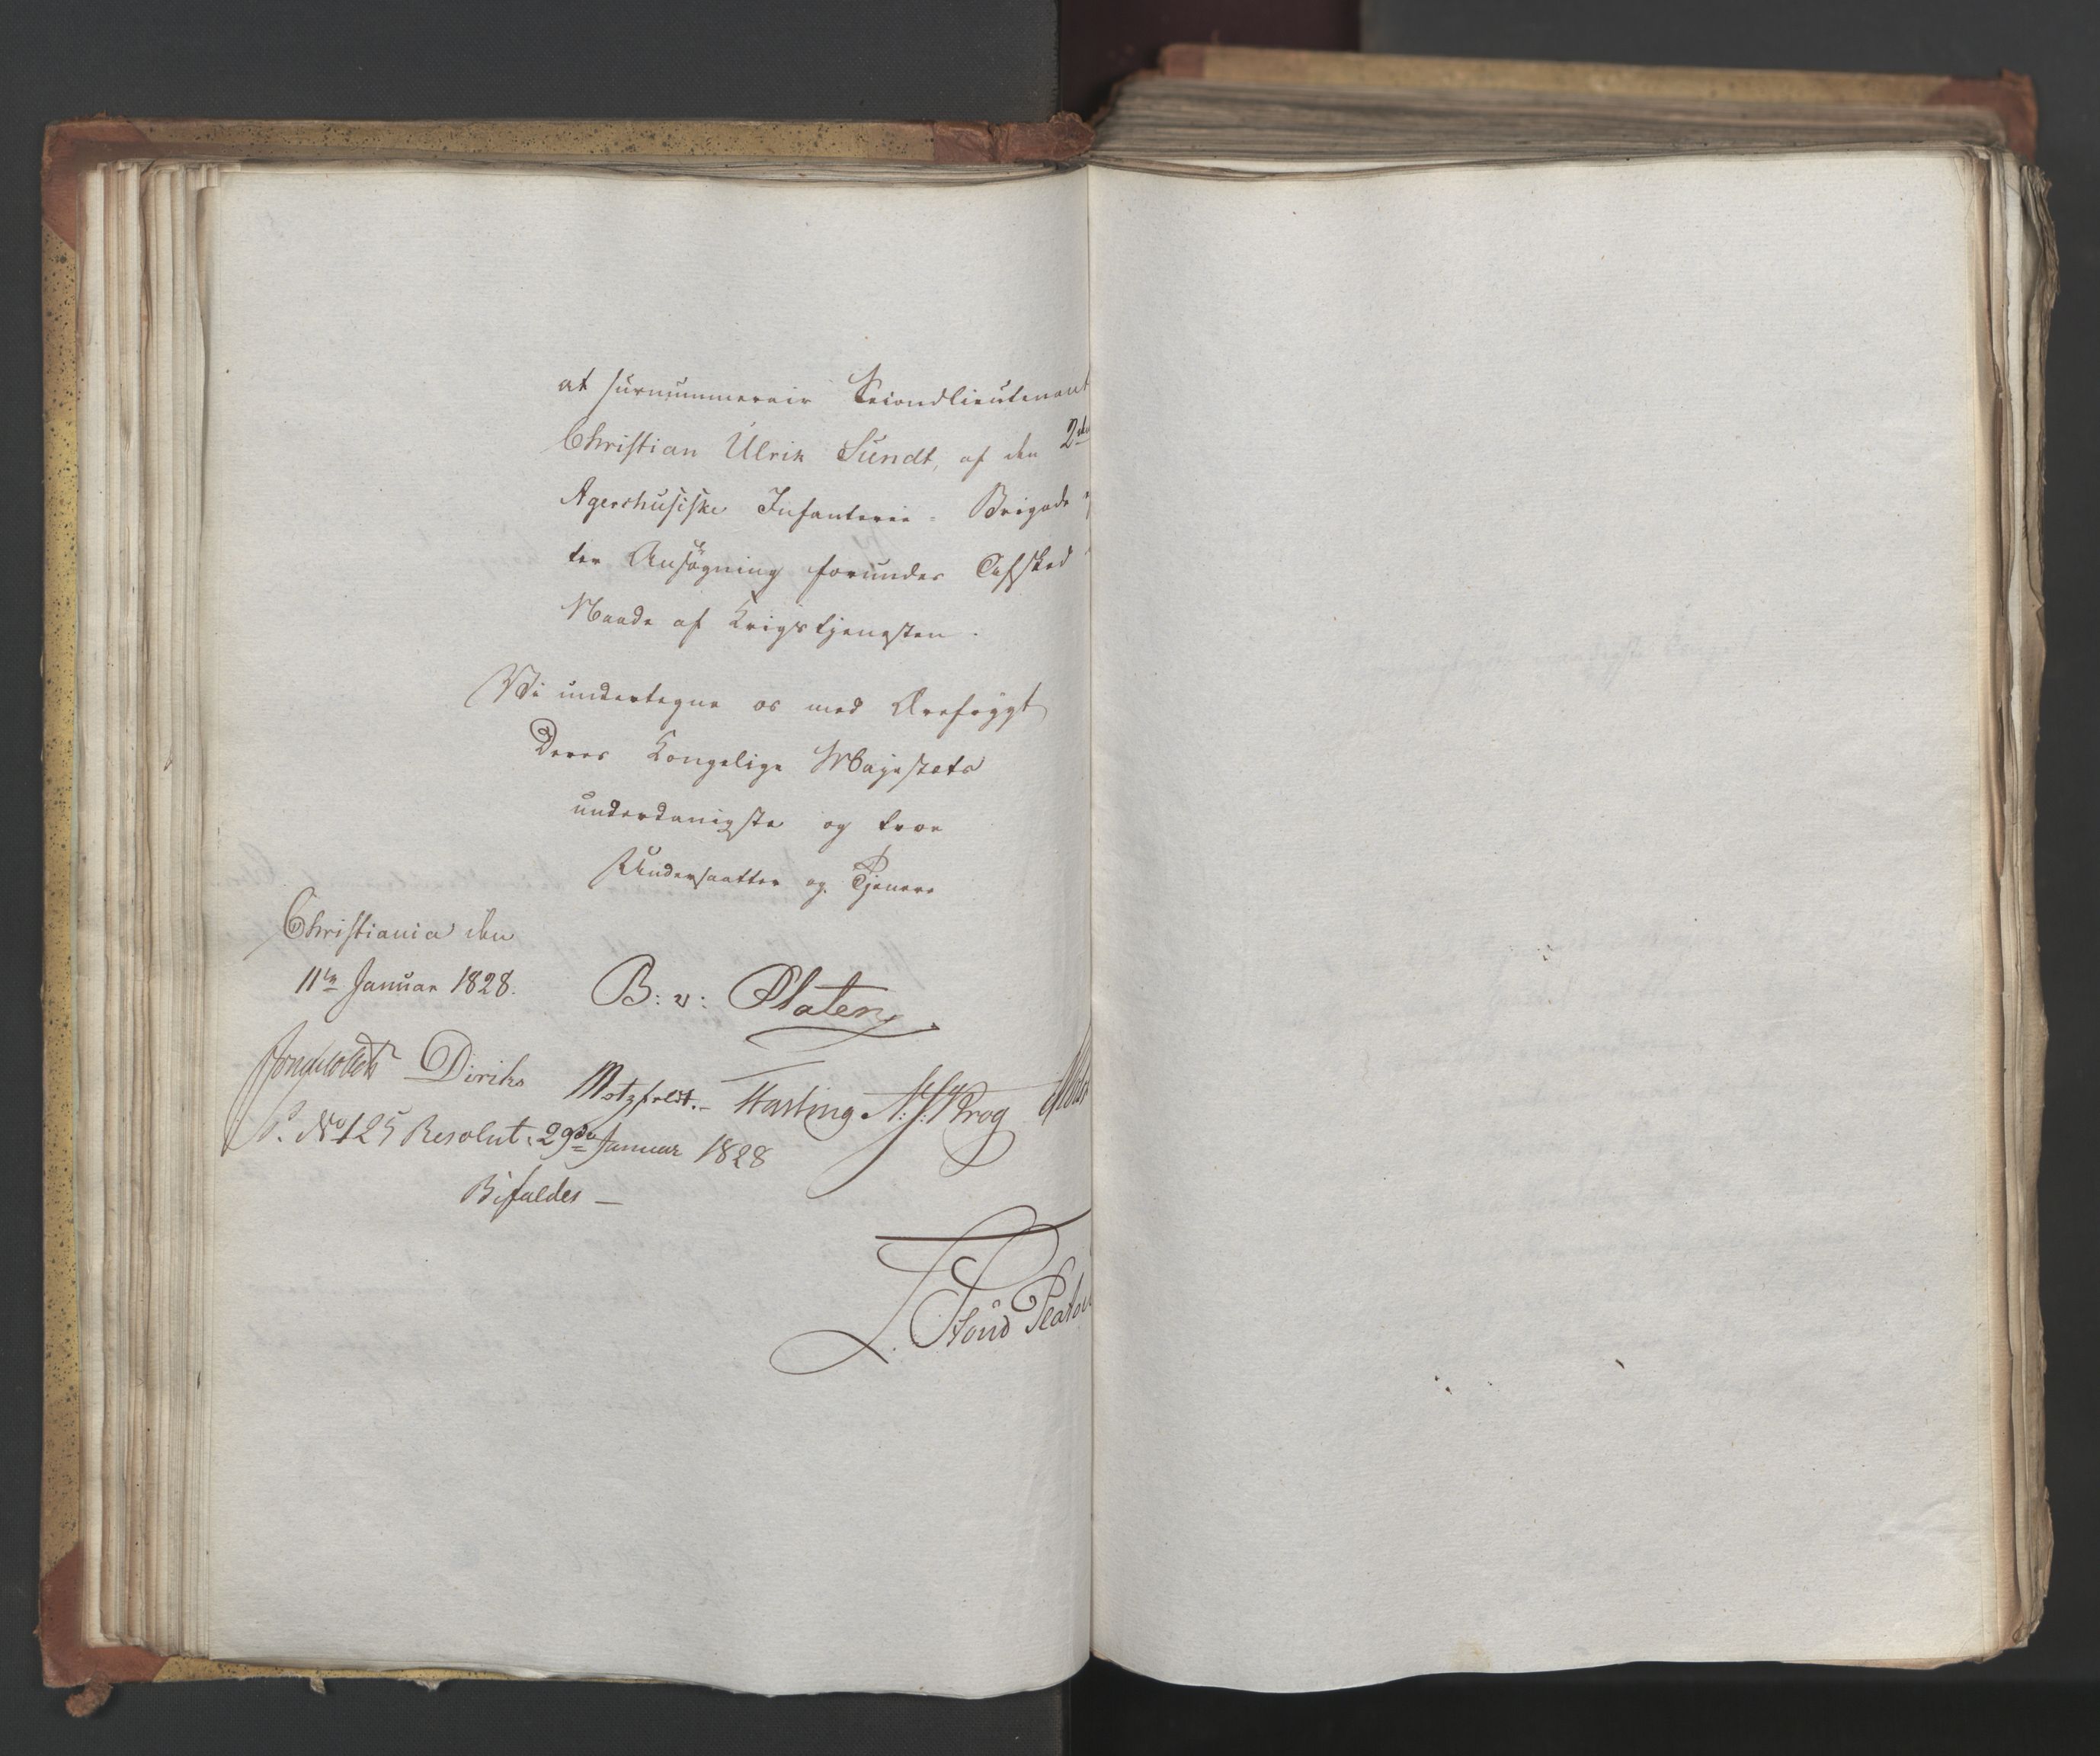 at surnummerair Secondlieutenant
Christian Ulrik Sundt, af den 2den
Agershusiske Infanterie-Brigade
ter Ansøgning forundes Afsked
Naade af Krigstjenesten.
Vi undertegne os med Ærefrygt
Deres Kongelige Majestæts
underdanigste og troe
Undersaatter og Tjenere
Christiania den
11te Januar 1828.
B: v: Platen
Diriks Motzfeldt.- Hasting. Krog
S. No 125 Resolut: 29de Januar 1828
Bifaldes —